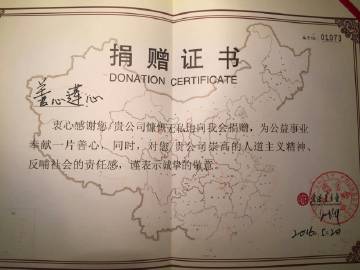 01073
捐赠证书
DONATION CERTIFICATE
善心莲心
衷心感谢您/贵公司慷慨无私地向我会捐赠，为公益事业
奉献一片善心，同时，对您/贵公司崇高的人道主义精神、
反哺社会的责任感，谨表示诚挚的敬意。
2016.5.20